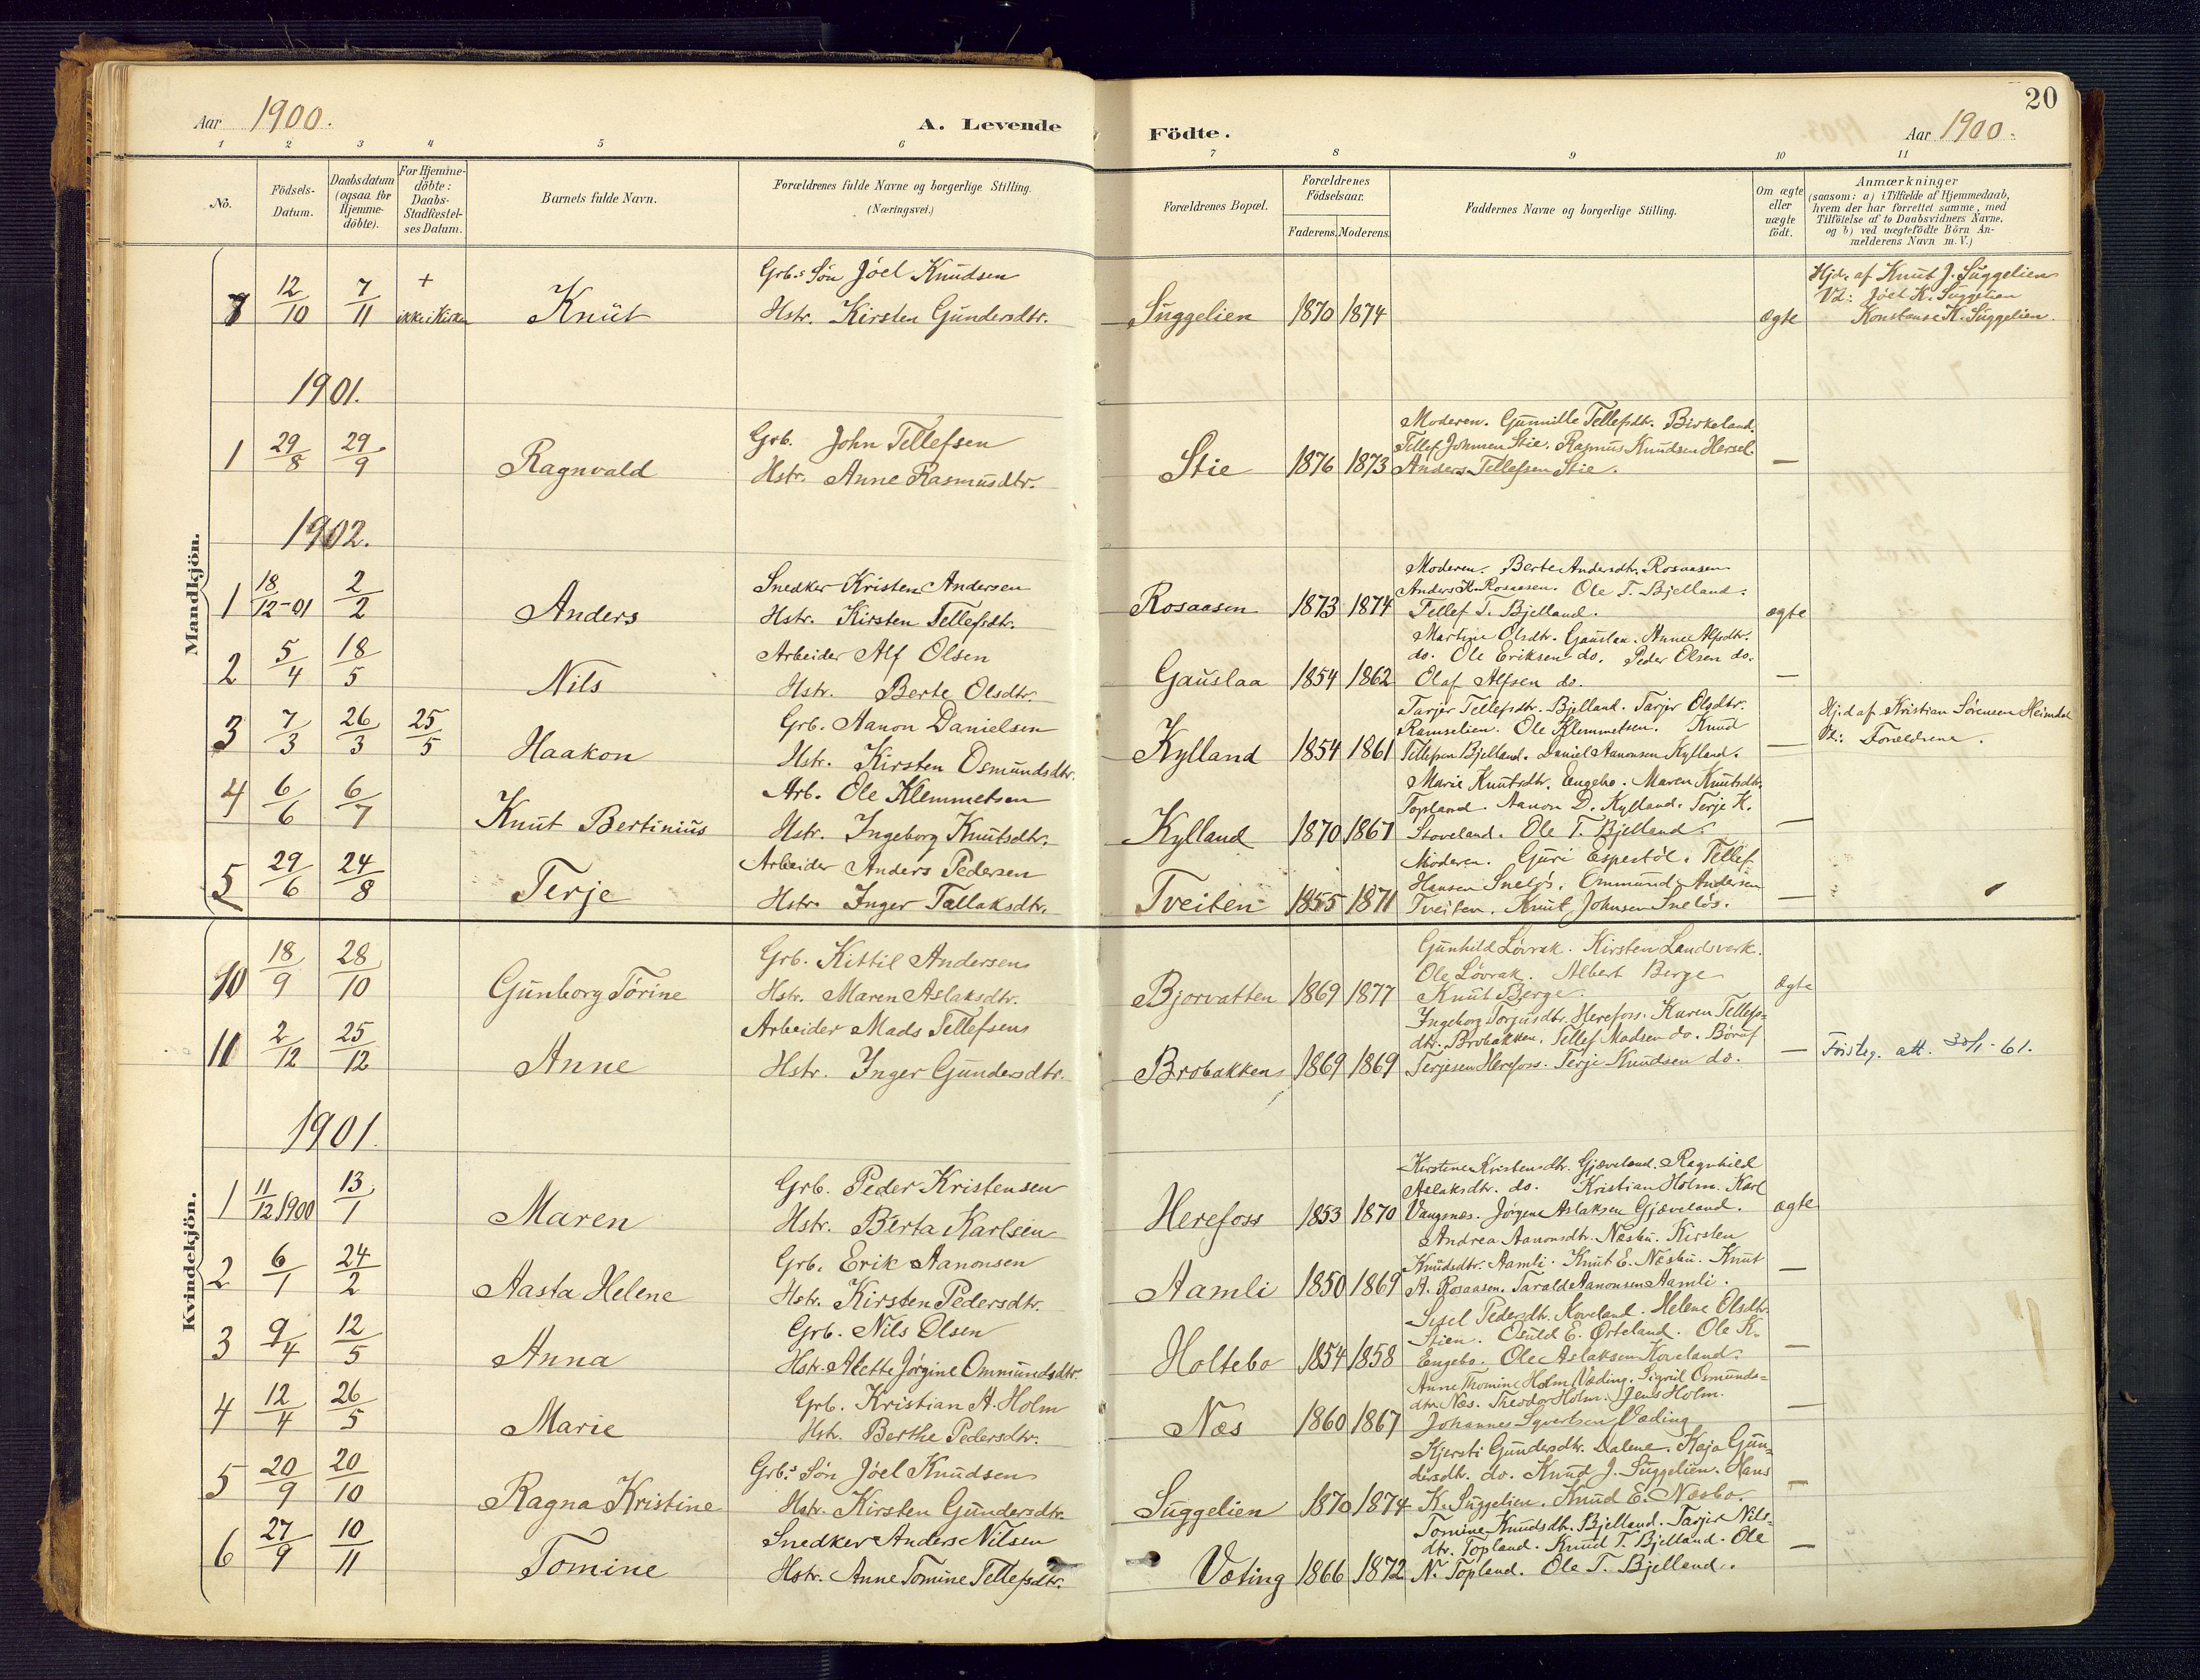 20
Aar 1900.
A. Levende Födte.
Aar 1900.
1 2 3 4 5 6 7 8 9 10 11
No.
Födsels-
Datum.
Daabsdatum
(ogsaa for
Hjemme-
döbte).
For Hjemme-
döbte:
Daabs-
Stadfestel-
ses Datum.
Barnets fulde Navn.
Forældrenes fulde Navne og borgerlige Stilling.
(Næringsvei.)
Forældrenes Bopæl.
Forældrenes
Födselsaar.
Faderens. Moderens.
Faddernes Navne og borgerlige Stilling.
Om ægte
eller
uægte
födt.
Anmærkninger
(saasom: a) i Tilfælde af Hjemmedaab,
hvem der har forrettet samme, med
Tilföielse af to Daabsvidners Navne.
og b) ved uægtefödte Börn An-
melderens Navn m. V.)
Mandkjön.
7 12/10 7/11 + ikke i Kirken Knut
Grb.s Søn Jóel Knudsen
Hstr. Kirsten Gundersdtr.
Suggelien 1870 1874 Ægte
Hjd. af Knut J. Suggelien
Vd: Jóel K. Suggelien
Konstanse K. Suggelien.
1901.
1 29/8 29/9 Ragnvald
Grb. John Tellefsen
Hstr. Anne Rasmusdtr.
Stie 1876 1873
Moderen. Gunnille Tellefsdtr. Birkeland.
Tellef Johnsen Stie. Rasmus Knudsen Hersel.
Anders Tellefsen Stie. —
1902.
1 18/12-01 2/2 Anders
Snedker Kristen Andersen
Hstr. Kirsten Tellefsdtr.
Rosaasen 1873 1874
Moderen. Berte Andersdtr. Rosaasen
Anders K. Rosaasen. Ole T. Bjelland.
Tellef T. Bjelland. ægte
2 5/4 18/5 Nils
Arbeider Alf Olsen
Hstr. Berte Olsdtr.
Gauslaa 1854 1862
Martine Olsdtr. Gauslaa. Anne Alfsdtr.
do. Ole Eriksen do. Peder Olsen do.
Olaf Alfsen do. —
3 7/3 26/3 25/5 Haakon
Grb. Aanon Danielsen
Hstr. Kirsten Osmundsdtr.
Kylland 1854 1861
Tarjer Tellefsdtr. Bjelland. Tarjer Olsdtr.
Ramselien. Ole Klemmetsen. Knud
Tellefsen Bjelland. Daniel Aanonsen Kylland. —
Hj.d af Kristian Sørensen Heimdal
Vd: Forældrene.
4 6/6 6/7 Knut Bertinius
Arb. Ole Klemmetsen
Hstr. Ingeborg Knutsdtr.
Kylland 1870 1867
Marie Knutsdtr. Engebo. Maren Knutsdtr.
Topland. Aanon D. Kylland. Terje K.
Stoveland. Ole T. Bjelland. —
5 29/6 24/8 Terje
Arbeider Anders Pedersen
Hstr. Inger Tallaksdtr.
Tveiten 1855 1871
Moderen. Guri Espestöl. Tellef
Hansen Snelös. Ommund Andersen
Tveiten. Knut Johnsen Snelös. —
Kvindekjön.
10 18/9 28/10 Gunborg Törine
Grb. Kittil Andersen
Hstr. Maren Aslaksdtr.
Bjorvatten 1869 1877
Gunhild Lövrak. Kirsten Landsverk.
Ole Lövrak. Albert Berge
Knut Berge. Ægte
11 2/12 25/12 Anne
Arbeider Mads Tellefsen
Hstr. Inger Gundersdtr.
Brobakken 1869 1869
Ingeborg Torjusdtr. Herefoss. Karen Tellefs-
dtr. Brobakken. Tellef Madsen do. Böruf
Terjesen Herefoss. Terje Knudsen do. —
att. 30/1-61.
1901.
1 11/12 1900 13/1 Maren
Grb. Peder Kristensen
Hstr. Berta Karlsen
Herefoss 1853 1870
Kirstine Kristensdtr. Gjæveland. Ragnhild
Aslaksdtr. do. Kristian Holm. Karl
Vangsnes. Jörgen Aslaksen Gjæveland. ægte
2 6/1 24/2 Aasta Helene
Grb. Erik Aanonsen
Hstr. Kirsten Pedersdtr.
Aamli 1850 1869
Andrea Aanonsdtr. Næsbu. Kirsten
Knudsdtr. Aamli. Knut E. Næsbu. Knut
A. Rosaasen. Tarald Aanonsen Aamli. —
3 9/4 12/5 Anna
Grb. Nils Olsen
Hstr. Alette Jörgine Ommundsdtr.
Holtebo 1854 1858
Sisel Pedersdtr. Koveland. Helene Olsdtr.
Stien. Osuld E. Örteland. Ole K.
Engebo. Ole Aslaksen Koveland. —
4 12/4 26/5 Marie
Grb. Kristian A. Holm
Hstr. Berthe Pedersdtr.
Næs 1860 1867
Anne Thomine Holm, Væding. Sigrid Osmunds-
dtr. Næs. Theodor Holm. Jens Holm.
Johannes Syvertsen Væding —
5 20/9 20/10 Ragna Kristine
Grb.s Søn Jóel Knudsen
Hstr. Kirsten Gundersdtr.
Suggelien 1870 1874
Kjersti Gundersdtr. Dalene. Kaja Gun-
dersdtr. do. Knud J. Suggelien. Hans
K. Suggelien. Knud E. Næsbo. —
6 27/9 10/11 Tomine
Snedker Anders Nilsen
Hstr. Anne Tomine Tellefsdtr.
Væting 1866 1872
Tomine Knudsdtr. Bjelland. Tarjer Nils-
dtr. Topland. Knud T. Bjelland. Ole
N. Topland. Ole T. Bjelland. —